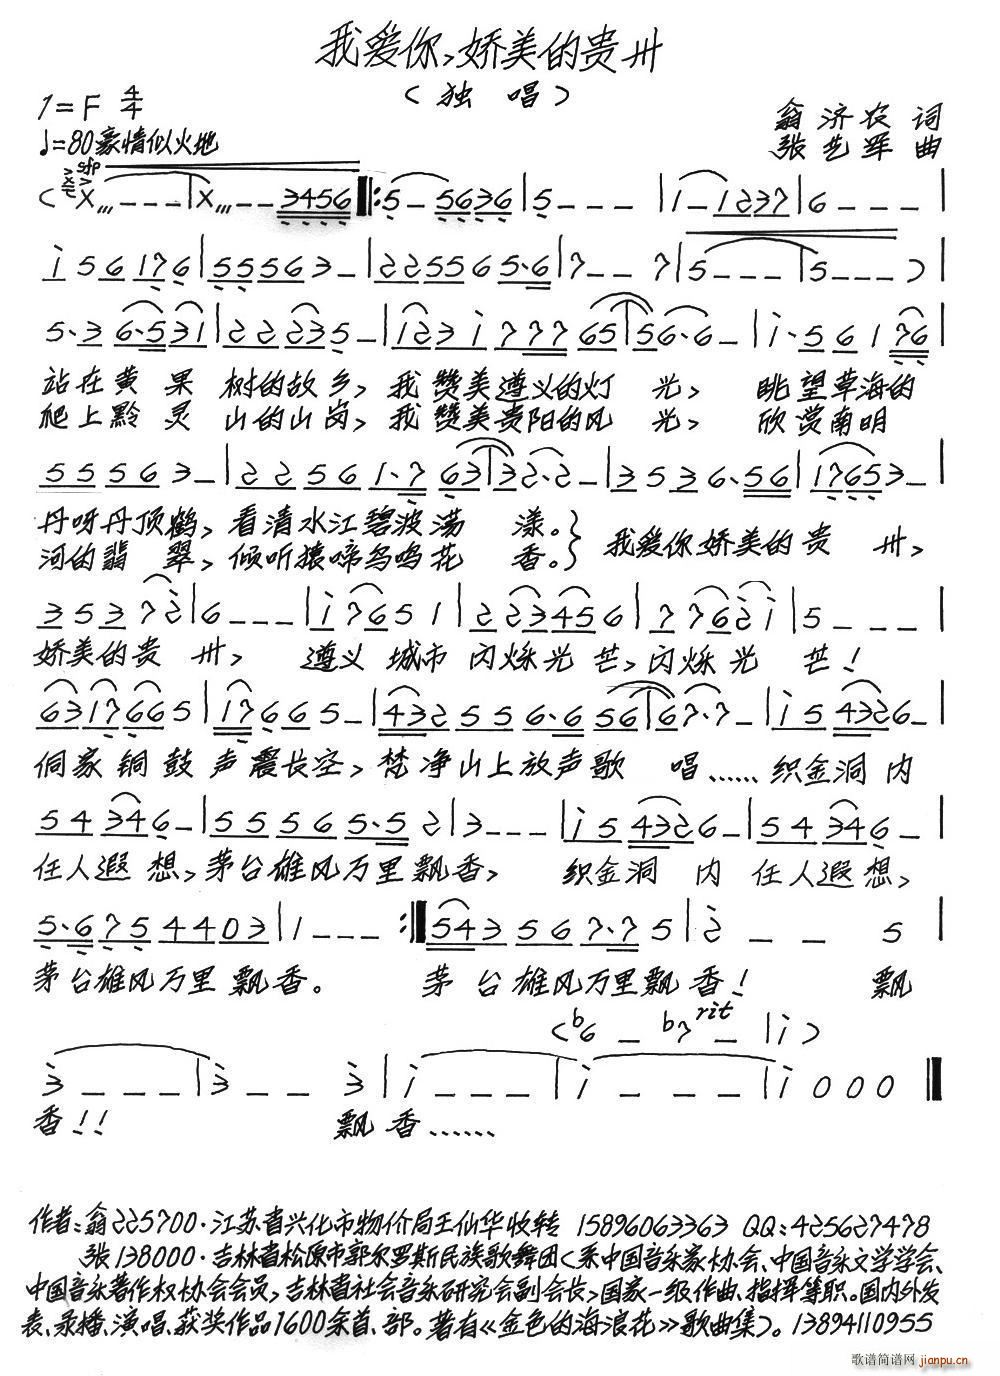 我爱你,娇美的贵州
(独 唱)
1=F 4/4
翁济农 词
♩=80豪情似火地
张艺军 曲
sfp
(X,,,---|X,,,--3456‖:5-5636|5---|1-1237|6---|
i56176|55563-|2255655·6|7--7|5---|5---)|
5·36·531|222235-|1231777765|56·6-|i·56176|
站在黄果 树的故乡,我赞美遵义的灯 光, 眺望草海的
爬上黔灵 山的山岗,我赞美贵阳的风 光, 欣赏南明
55563-|22561·763|32·2-|3536·56|17653-|
丹呀丹顶鹤,看清水江碧波荡 漾。
河的翡 翠,倾听猿啼鸟鸣花 香。} 我爱你娇美的贵 州,
35372|6---|i7651|2234556|7762i|5---|
娇美的贵 州, 遵义 城市 闪烁光 芒,闪烁光 芒!
6317665|17665-|432556·656|67·7-|i54326-|
侗家铜鼓声震长空,梵净山上放声歌 唱……织金洞内
54346-|55565·52|3---|i54326-|54346-|
任人遐想,茅台雄风万里飘香, 织金洞 内 任人遐想,
5·6754403|1---:‖543567·75|2--5|
茅台雄风万里飘香。 茅台雄风万里飘香! 飘
(b6-b7-|i)
rit
3---|3--3|i---|i---|i000‖
香!! 飘香……
作者:翁225700·江苏省兴化市物价局王仙华收转 15896063363 QQ:425627478
张138000·吉林省松原市郭尔罗斯民族歌舞团(系中国音乐家协会、中国音乐文学学会、
中国音乐著作权协会会员,吉林省社会音乐研究会副会长,国家一级作曲、指挥等职。国内外发
表、录播、演唱、获奖作品1600余首、部。著有《金色的海浪花》歌曲集)。13894110955
歌谱简谱网
jianpu.cn